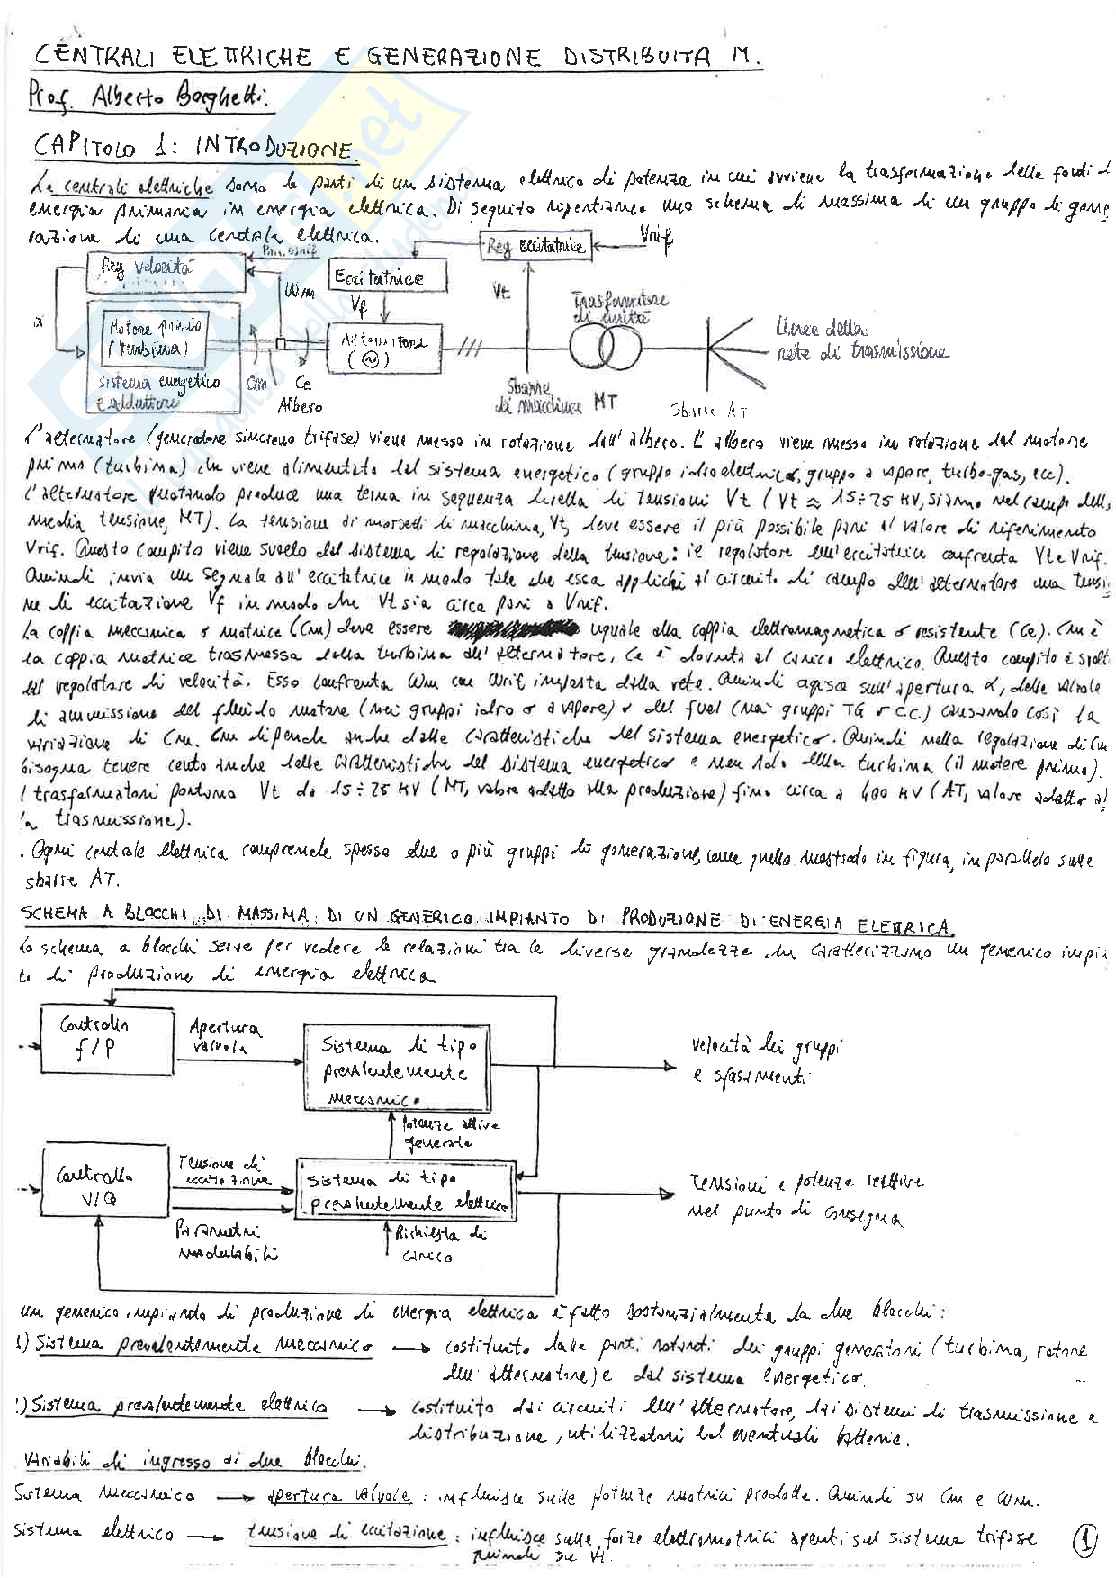 CENTRALI ELETTRICHE E GENERAZIONE DISTRIBUITA M.
Prof. Alberto Borghetti.
CAPITOLO 1: INTRODUZIONE.
Le centrali elettriche sono le parti di un sistema elettrico di potenza in cui avviene la trasformazione delle fonti di
energia primaria in energia elettrica. Di seguito riportiamo uno schema di massima di un gruppo di gene
razione di una centrale elettrica.
Reg velocità
Wm
Eccitatrice
Vf
Reg eccitatrice
Vrif
Vt
α
Motore primo
(turbina)
Sistema energetico
e adduttore
Cm
Ce
Albero
Alternatore
Trasformatore
di unità
Sbarre
di macchina MT
Sbarre AT
Linee della
rete di trasmissione
L'alternatore (generatore sincrono trifase) viene messo in rotazione dall'albero. L'albero viene messo in rotazione dal motore
primo (turbina) che viene alimentato dal sistema energetico (gruppo idroelettrico, gruppo a vapore, turbo-gas, ecc).
L'alternatore ruotando produce una terna in sequenza diretta di tensioni Vt (Vt ≈ 15÷25 kV, siamo nel campo della
media tensione, MT). La tensione ai morsetti di macchina, Vt, deve essere il più possibile pari al valore di riferimento
Vrif. Questo compito viene svolto dal sistema di regolazione della tensione: il regolatore dell'eccitatrice confronta Vt e Vrif.
Quindi invia un segnale all'eccitatrice in modo tale che essa applichi al circuito di campo dell'alternatore una tensio
ne di eccitazione Vf in modo che Vt sia circa pari a Vrif.
La coppia meccanica o motrice (Cm) deve essere uguale alla coppia elettromagnetica o resistente (Ce). Cm è
la coppia motrice trasmessa dalla turbina all'alternatore, Ce è dovuta al carico elettrico. Questo compito è svolto
dal regolatore di velocità. Esso confronta Wm con Wrif imposta dalla rete. Quindi agisce sull'apertura α, delle valvole
di ammissione del fluido motore (nei gruppi idro o a vapore) o del fuel (nei gruppi TG o C.C.) causando così la
variazione di Cm. Cm dipende anche dalle caratteristiche del sistema energetico. Quindi nella regolazione di Cm
bisogna tenere conto anche delle caratteristiche del sistema energetico e non solo della turbina (il motore primo).
I trasformatori portano Vt da 15÷25 kV (MT, valore adatto alla produzione) fino circa a 400 kV (AT, valore adatto al
la trasmissione).
. Ogni centrale elettrica comprende spesso due o più gruppi di generazione, come quello mostrato in figura, in parallelo sulle
sbarre AT.
SCHEMA A BLOCCHI DI MASSIMA DI UN GENERICO IMPIANTO DI PRODUZIONE DI ENERGIA ELETTRICA
Lo schema a blocchi serve per vedere le relazioni tra le diverse grandezze che caratterizzano un generico impia
to di produzione di energia elettrica
Controllo
f/P
Apertura
valvola
Sistema di tipo
prevalentemente
meccanico
velocità dei gruppi
e sfasamenti
Potenze attive
generate
Controllo
V/Q
Tensione di
eccitazione
Parametri
modulabili
Sistema di tipo
prevalentemente elettrico
Richiesta di
carico
Tensioni e potenze reattive
nel punto di consegna
Un generico impianto di produzione di energia elettrica è fatto sostanzialmente da due blocchi:
1) Sistema prevalentemente meccanico → costituito dalle parti rotanti dei gruppi generatori (turbina, rotore
dell'alternatore) e dal sistema energetico.
!) Sistema prevalentemente elettrico → costituito dai circuiti dell'alternatore, dai sistemi di trasmissione e
distribuzione, utilizzatori ed eventuali batterie.
Variabili di ingresso ai due blocchi.
Sistema meccanico → apertura valvole: influisce sulle potenze motrici prodotte. Quindi su Cm e Wm.
Sistema elettrico → tensione di eccitazione: influisce sulle forze elettromotrici agenti sul sistema trifase
quindi su Vt.
1